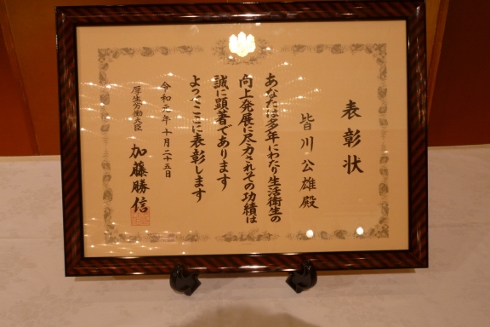 表彰状
皆川公雄殿
あなたは多年にわたり生活衛生の
向上発展に尽力されその功績は
誠に顕著であります
よってここに表彰します
令和元年十月二十五日
厚生労働大臣
加藤勝信